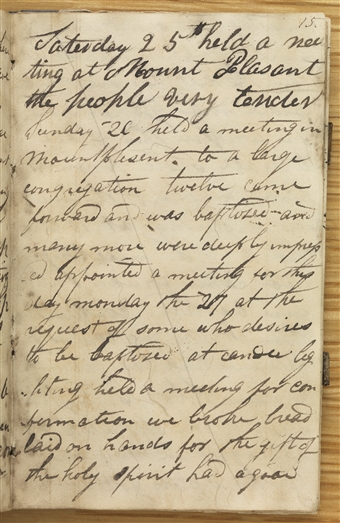 15.
Saterday 25th held a mee
ting at Mount Pleasant
the people very tender
Sunday 26 held a meeting in
Mountplesent. to a large
congregation twelve came
forward and was baptosed and
many more were deeply impress
ed appointed a meeting for this
day monday the 27 at the
request of some who desires
to be baptosed at candle lig
hting held a meeting for con
firmation we broke bread
laid on hands for the gift of
the holy spirit had a good